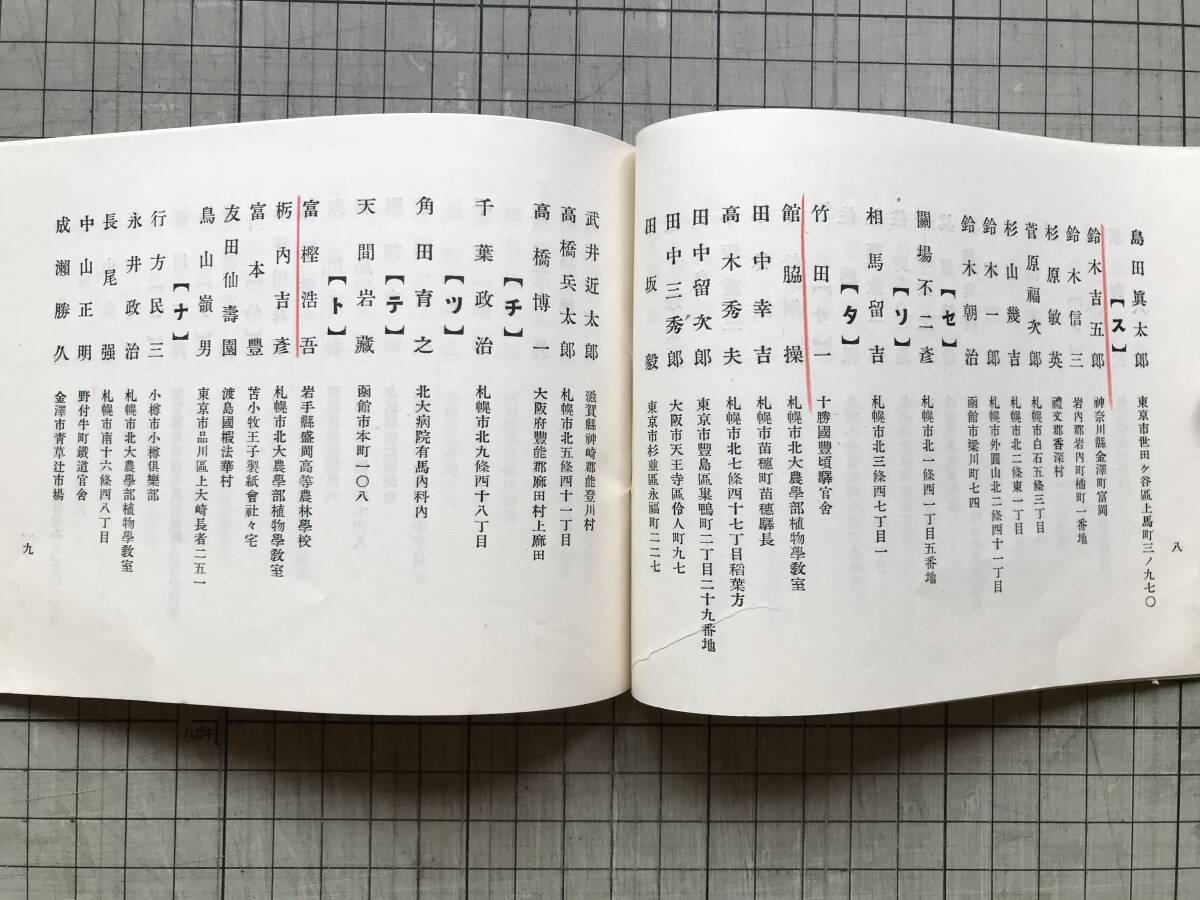 島田眞六太郎 東京市世田ケ谷區上馬町三ノ九七〇
【ス】
鈴木吉五郎 神奈川縣金澤町富岡
鈴木信三 岩內郡岩內町橘町一番地
杉原敏英 禮文郡香深村
菅原福次郎 札幌市白石五條三丁目
杉山幾吉 札幌市北二條東一丁目
鈴木一郎 札幌市外圓山北二條四十一丁目
鈴木朝治 函館市梁川町七四
【セ】
關場不二彥 札幌市北一條西一丁目五番地
【ソ】
相馬留吉 札幌市北三條西七丁目一
【タ】
竹田一 十勝國豐頃驛官舍
館脇操 札幌市北大農學部植物學敎室
田中幸吉 札幌市苗穗町苗穗驛長
高木秀夫 札幌市北七條西十七丁目稻葉方
田中留次郎 東京市豐島區巢鴨町二丁目二十九番地
田中三秀郎 大阪市天王寺區伶人町九七
田坂毅 東京市杉並區永福町二二七
八
武井近太郎 滋賀縣神崎郡能登川村
高橋兵太郎 札幌市北五條西十一丁目
高橋博一 大阪府豐能郡麻田村上麻田
【チ】
千葉政治 札幌市北九條西十八丁目
【ツ】
角田育之 北大病院有馬內科內
【テ】
天間岩藏 函館市本町一〇八
【ト】
富樫浩吾 岩手縣盛岡高等農林學校
栃內吉彥 札幌市北大農學部植物學敎室
富本豐 苫小牧王子製紙會社々宅
友田仙壽園 渡島國椴法華村
鳥山嶺男 東京市品川區上大崎長者二五一
【ナ】
行方民三 小樽市小樽俱樂部
永井政治 札幌市北大農學部植物學敎室
長尾强 札幌市南十六條西八丁目
中山正明 野付牛町鐵道官舍
成瀨勝久 金澤市靑草辻市場
九
ハガキ